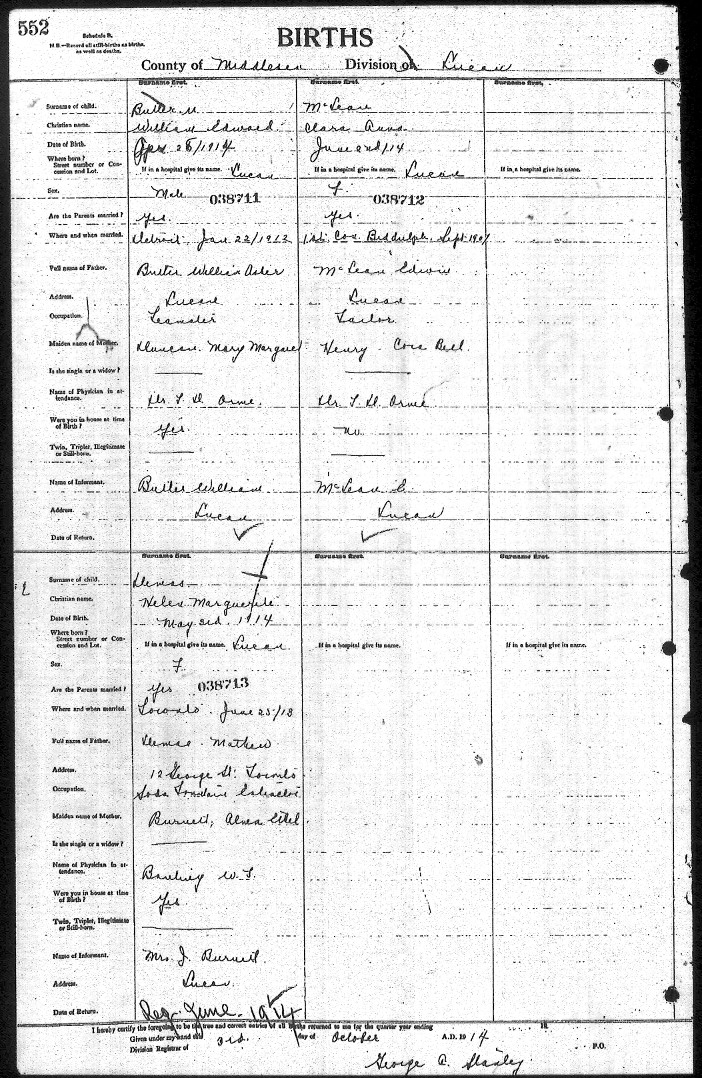 552
Schedule B.
N.B.—Record all still-births as births, as well as deaths.
BIRTHS
County of Middlesex Division of Lucan
Surname first. Surname first. Surname first.
Surname of child. Butler McLean
Christian name. William Edward Clara Anna
Date of Birth. 1914 June 2nd/14
Where born? Street number or Concession and Lot. If in a hospital give its name. Lucan If in a hospital give its name. Lucan If in a hospital give its name.
Sex. Male 038711 F. 038712
Are the Parents married? Yes. Yes.
Where and when married. Detroit, Jan 22/1912 Con. Biddulph, Sept 1907
Full name of Father. Butler William McLean Edwin
Address. Lucan Lucan
Occupation. Teamster Tailor
Maiden name of Mother. Duncan, Mary Margaret Henry Cora Bell
Is she single or a widow?
Name of Physician in attendance. Dr. T. D. Orme. Dr. T. D. Orme
Were you in house at time of Birth? Yes. No
Twin, Triplet, Illegitimate or Still-born.
Name of Informant. Butler William McLean
Address. Lucan Lucan
Date of Return.
Surname first. Surname first. Surname first.
Surname of child.
Christian name. Helen Marguerite
Date of Birth. May 1914
Where born? Street number or Concession and Lot. If in a hospital give its name. Lucan If in a hospital give its name. If in a hospital give its name.
Sex. F
Are the Parents married? Yes 038713
Where and when married. Toronto. June 25/13
Full name of Father. Mathew
Address. 12 George St. Toronto
Occupation. Soda Fountain
Maiden name of Mother. Burnett, Alma Ethel
Is she single or a widow?
Name of Physician in attendance. W. T.
Were you in house at time of Birth? Yes
Twin, Triplet, Illegitimate or Still-born.
Name of Informant. Mrs. J. Burnett
Address. Lucan
Date of Return. Reg. June 1914
I hereby certify the foregoing to be true and correct entries of all Births returned to me for the quarter year ending 19
Given under my hand this 3rd. day of October A.D. 1914
Division Registrar of George A. Stanley P.O.